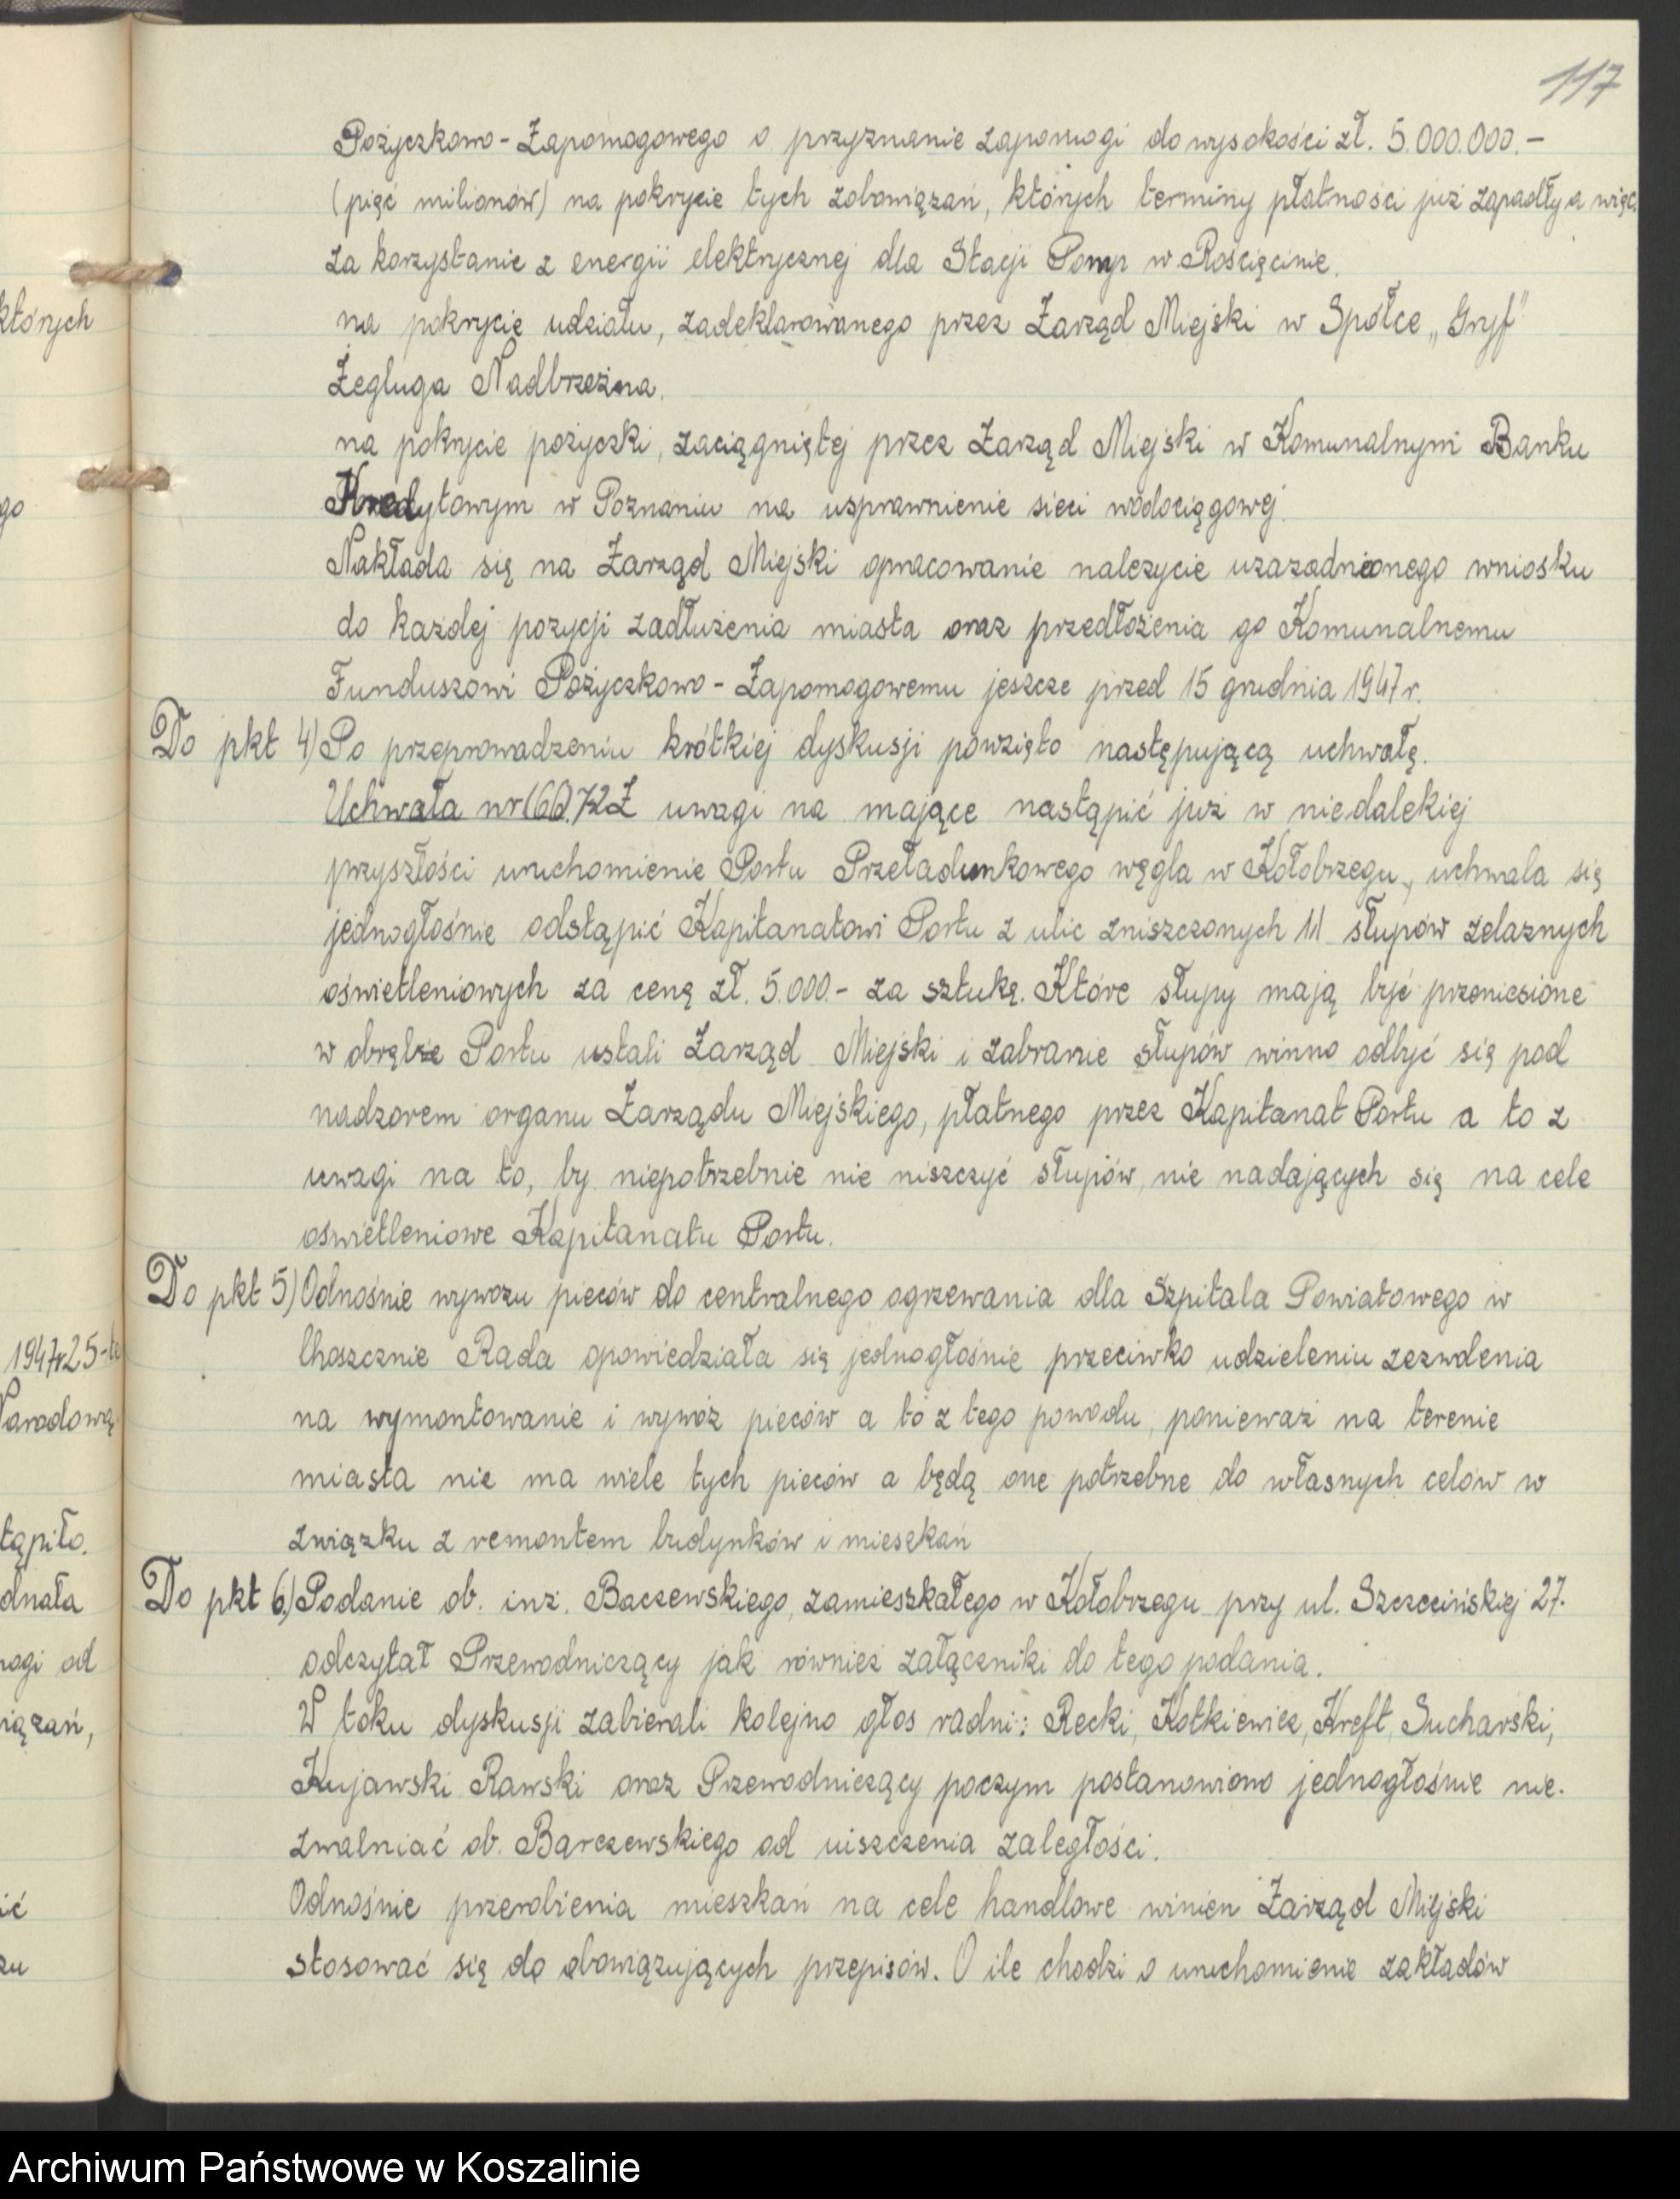 117
Pożyczkowo-Zapomogowego o przyznanie zapomogi do wysokości zł. 5.000.000.-
(pięć milionów) na pokrycie tych zobowiązań, których terminy płatności już zapadły a więc
za korzystanie z energii elektrycznej dla Stacji Pomp w Rościęcinie.
na pokrycie udziału, zadeklarowanego przez Zarząd Miejski w Spółce „Gryf"
Żegluga Nadbrzeżna.
na pokrycie pożyczki, zaciągniętej przez Zarząd Miejski w Komunalnym Banku
Kredytowym w Poznaniu na usprawnienie sieci wodociągowej.
Nakłada się na Zarząd Miejski opracowanie należycie uzazadnionego wniosku
do każdej pozycji zadłużenia miasta oraz przedłożenia go Komunalnemu
Funduszowi Pożyczkowo-Zapomogowemu jeszcze przed 15 grudnia 1947 r.
Do pkt 4) Po przeprowadzeniu krótkiej dyskusji powzięto następującą uchwałę.
Uchwała nr (60).72 Z uwagi na mające nastąpić już w niedalekiej
przyszłości uruchomienie Portu Przeładunkowego węgla w Kołobrzegu, uchwala się
jednogłośnie odstąpić Kapitanatowi Portu z ulic zniszczonych 11 słupów żelaznych
oświetleniowych za cenę zł. 5.000.- za sztukę. Które słupy mają być przeniesione
w obrębie Portu ustali Zarząd Miejski i zabranie słupów winno odbyć się pod
nadzorem organu Zarządu Miejskiego, płatnego przez Kapitanat Portu a to z
uwagi na to, by niepotrzebnie nie niszczyć słupów, nie nadających się na cele
oświetleniowe Kapitanatu Portu.
Do pkt 5) Odnośnie wywozu pieców do centralnego ogrzewania dla Szpitala Powiatowego w
Choszcznie Rada opowiedziała się jednogłośnie przeciwko udzieleniu zezwolenia
na wymontowanie i wywóz pieców a to z tego powodu, ponieważ na terenie
miasta nie ma wiele tych pieców a będą one potrzebne do własnych celów w
związku z remontem budynków i mieszkań
Do pkt 6.) Podanie ob. inż. Baczewskiego, zamieszkałego w Kołobrzegu przy ul. Szczecińskiej 27.
odczytał Przewodniczący jak również załączniki do tego podania.
W toku dyskusji zabierali kolejno głos radni: Recki, Kotkiewicz, Kreft, Sucharski,
Kujawski Rawski oraz Przewodniczący poczym postanowiono jednogłośnie nie.
zwalniać ob. Barczewskiego od uiszczenia zaległości.
Odnośnie przerobienia mieszkań na cele handlowe winien Zarząd Miejski
stosować się do obowiązujących przepisów. O ile chodzi o uruchomienie zakładów
których
go
1947r 25-te
Narodową
tąpiło.
dnała
mogi od
iązań,
ić
zu
Archiwum Państwowe w Koszalinie